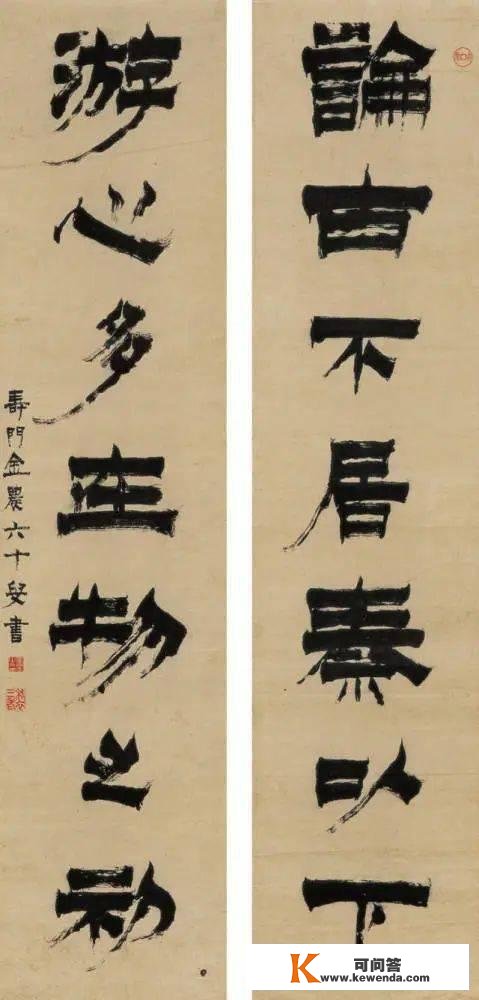 論古不居秦以下
游心多在物之初
壽門金農六十叟書
K 可问答
www.kewenda.com